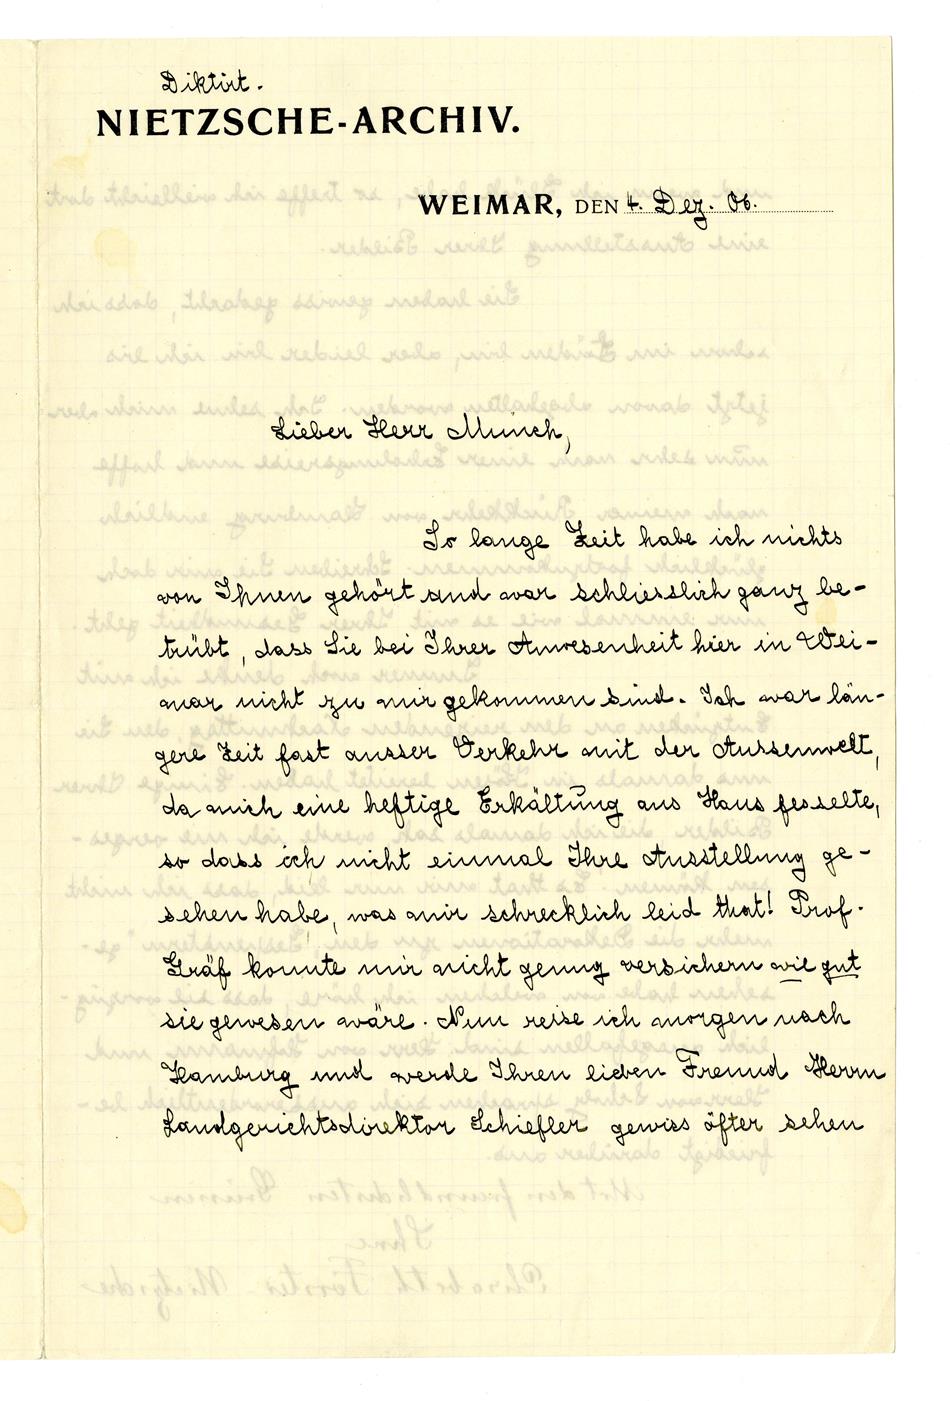 Diktirt.
NIETZSCHE-ARCHIV.
WEIMAR, DEN 4. Dez. 06.
Lieber Herr Munch,
So lange Zeit habe ich nichts
von Ihnen gehört und war schliesslich ganz be-
trübt, dass Sie bei Ihrer Anwesenheit hier in Wei-
mar nicht zu mir gekommen sind. Ich war län-
gere Zeit fast ausser Verkehr mit der Aussenwelt,
da mich eine heftige Erkältung ans Haus fesselte,
so dass ich nicht einmal Ihre Ausstellung ge-
sehen habe, was mir schrecklich leid that! Prof.
Gräf konnte mir nicht genug versichern wie gut
sie gewesen wäre. Nun reise ich morgen nach
Hamburg und werde Ihren lieben Freund Herrn
Landgerichtsdirektor Schiefler gewiss öfter sehen